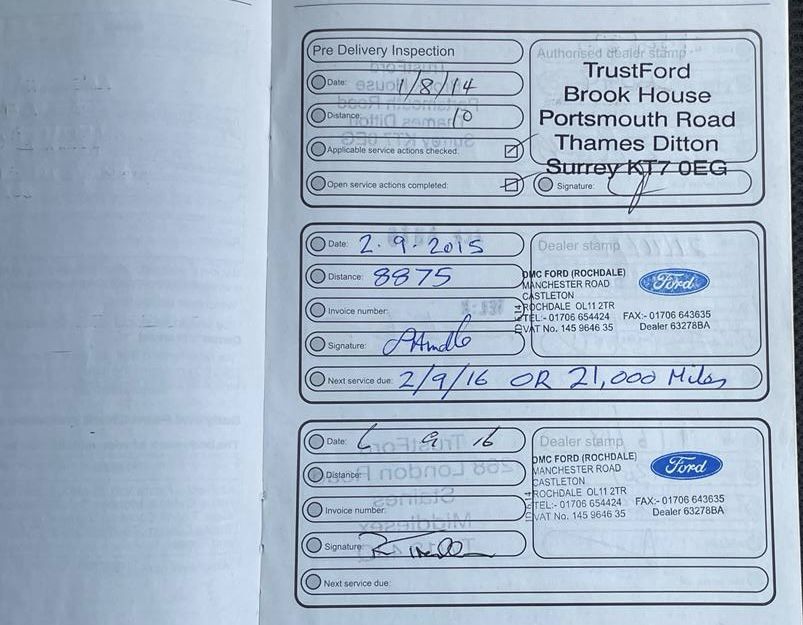 Pre Delivery Inspection
Date: 1/8/14
Distance: 10
Applicable service actions checked:
Open service actions completed:
Authorised dealer stamp
TrustFord
Brook House
Portsmouth Road
Thames Ditton
Surrey KT7 0EG
Signature:
Date: 2.9.2015
Distance: 8875
Invoice number:
Signature:
Next service due: 2/9/16 OR 21,000 Miles
Dealer stamp
DMC FORD (ROCHDALE)
MANCHESTER ROAD
CASTLETON
ROCHDALE OL11 2TR
TEL:- 01706 654424 FAX:- 01706 643635
VAT No. 145 9646 35 Dealer 63278BA
Ford
Date: 6 9 16
Distance:
Invoice number:
Signature:
Next service due:
Dealer stamp
DMC FORD (ROCHDALE)
MANCHESTER ROAD
CASTLETON
ROCHDALE OL11 2TR
TEL:- 01706 654424 FAX:- 01706 643635
VAT No. 145 9646 35 Dealer 63278BA
Ford